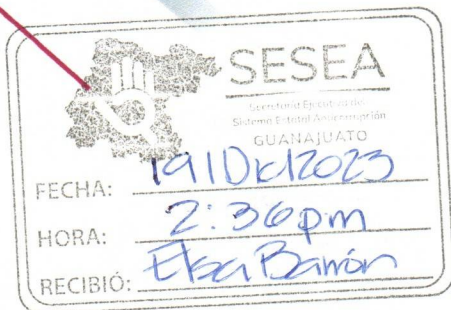 SESEA
Secretaría Ejecutiva del
Sistema Estatal Anticorrupción
GUANAJUATO
FECHA: 19/Dic/2023
HORA: 2:36pm
RECIBIÓ: Elsa Barrón